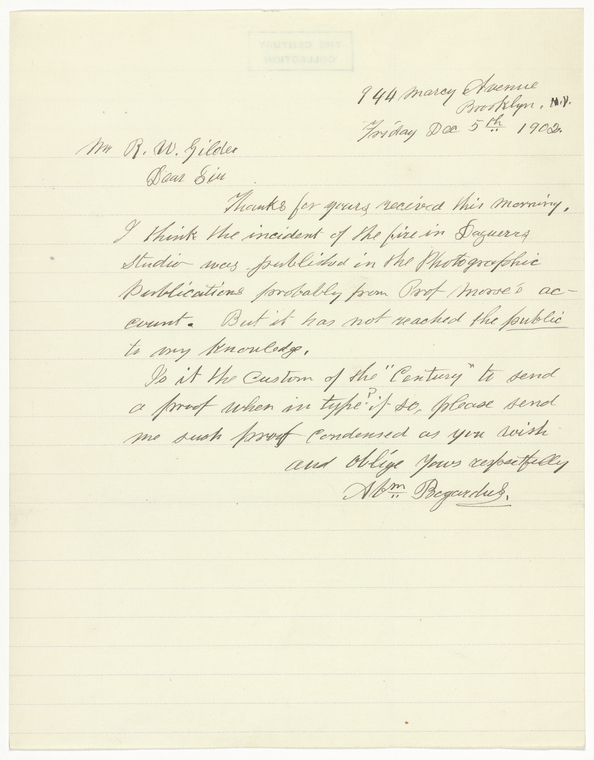 THE CENTURY
COLLECTION
944 Marcy Avenue
Brooklyn, N.Y.
Friday Dec 5th 1902.
Mr R. W. Gilder
Dear Sir
Thanks for yours received this morning.
I think the incident of the fire in Daguerrs
studio was published in the Photographic
Publications probably from Prof Morse's ac-
count. But it has not reached the public
to my knowledge.
Is it the custom of the "Century" to send
a proof when in type? if so, please send
me such proof condensed as you wish
and oblige yours respectfully
Abm Bogardus.